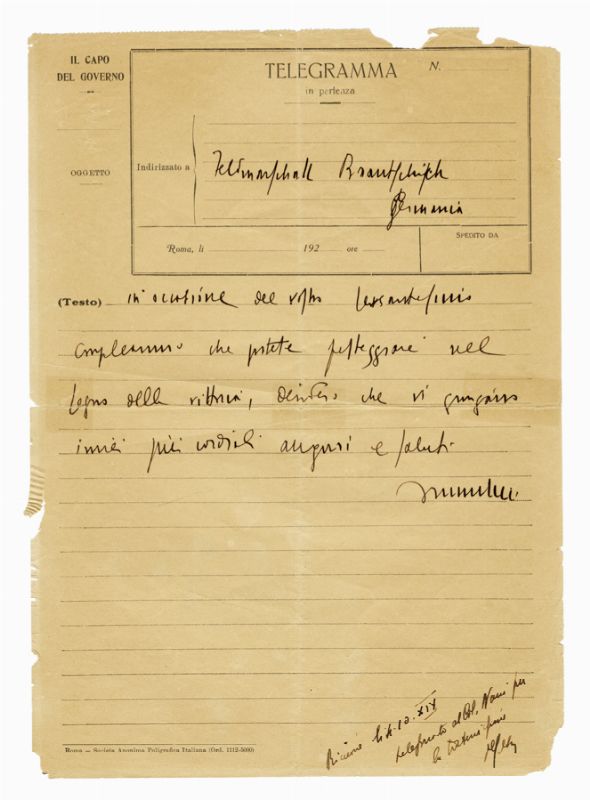 IL CAPO
DEL GOVERNO
OGGETTO
TELEGRAMMA N.
in partenza
Indirizzato a Feldmarschall Brautschisch
Germania
Roma, li 192 ore
SPEDITO DA
(Testo) in occasione del vostro sessantesimo
compleanno che potete festeggiare nel
segno della vittoria, desidero che vi giungano
i miei più cordiali auguri e saluti
Mussolini
Riccione XIX
telefonato al Col. per
Roma — Società Anonima Poligrafica Italiana (Ord. 1112-5000)